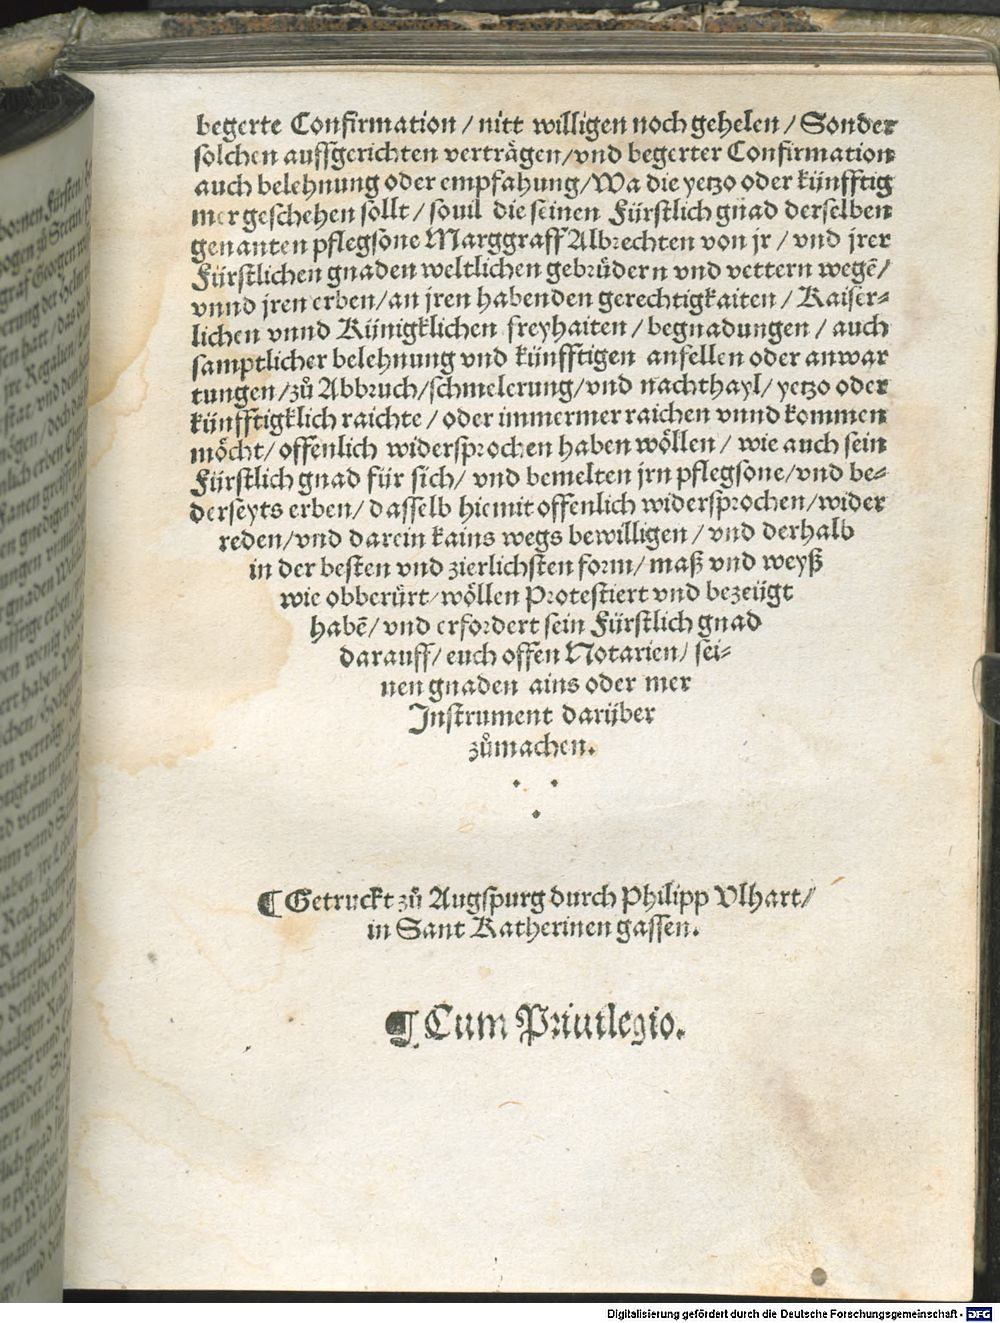 begerte Confirmation / nitt willigen noch gehelen / Sonder
solchen auffgerichten verträgen/vnd begerter Confirmation
auch belehnung oder empfahung/Wa die yetzo oder künfftig
mer geschehen sollt / souil die seinen Fürstlich gnad derselben
genanten pflegsone Marggraff Albrechten von jr / vnd jrer
Fürstlichen gnaden weltlichen gebrüdern vnd vettern wegē/
vnnd jren erben/an jren habenden gerechtigkaiten / Kaiser-
lichen vnnd Künigklichen freyhaiten / begnadungen / auch
samptlicher belehnung vnd künfftigen anfellen oder anwar
tungen/zů Abbruch/schmelerung/vnd nachthayl/ yetzo oder
künfftigklich raichte / oder immermer raichen vnnd kommen
möcht/ offenlich widersprochen haben wöllen / wie auch sein
Fürstlich gnad für sich/ vnd bemelten jrn pflegsone/vnd be-
derseyts erben/ dasselb hiemit offenlich widersprochen/wider
reden/vnd darein kains wegs bewilligen / vnd derhalb
in der besten vnd zierlichsten form/ maß vnd weyß
wie obberürt/wöllen Protestiert vnd bezeügt
habē/ vnd erfordert sein Fürstlich gnad
darauff/ euch offen Notarien/ sei-
nen gnaden ains oder mer
Instrument darüber
zůmachen.
¶ Getruckt zů Augspurg durch Philipp Vlhart/
in Sant Katherinen gassen.
¶ Cum Priuilegio.
Digitalisierung gefördert durch die Deutsche Forschungsgemeinschaft - DFG